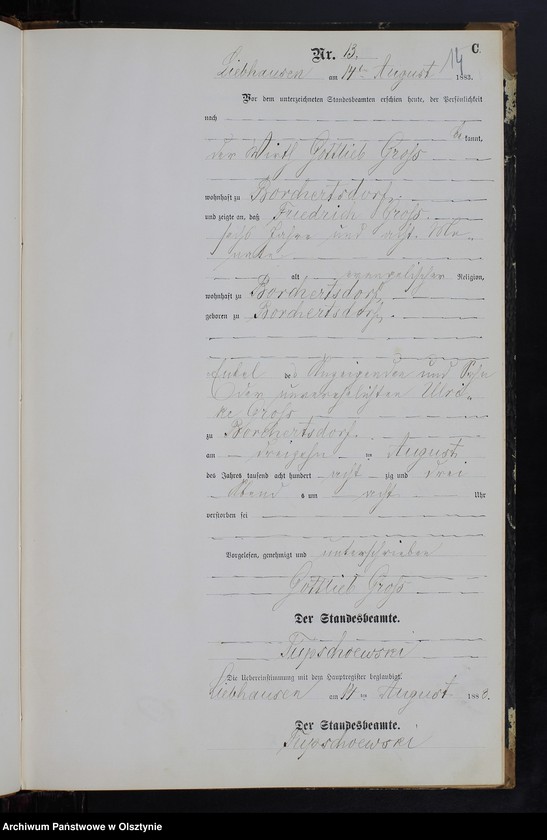 C.
14
Nr. 13.
Liebhausen am 14ten August 1883.
Vor dem unterzeichneten Standesbeamten erschien heute, der Persönlichkeit
nach
be kannt,
der Wirth Gottlieb Groß
wohnhaft zu Borchertsdorf
und zeigte an, daß Friedrich Groß
sechs Jahre und acht Mo-
nate
alt evangelischer Religion,
wohnhaft zu Borchertsdorf
geboren zu Borchertsdorf
Enkel des Anzeigenden und Sohn
der unverehelichten Ulri-
ke Groß
zu Borchertsdorf
am dreizehn ten August
des Jahres tausend acht hundert acht zig und drei
Abend s um acht Uhr
verstorben sei
Vorgelesen, genehmigt und unterschrieben
Gottlieb Groß
Der Standesbeamte.
Die Uebereinstimmung mit dem Hauptregister beglaubigt.
Liebhausen am 14 ten August 1883.
Der Standesbeamte.
Archiwum Państwowe w Olsztynie